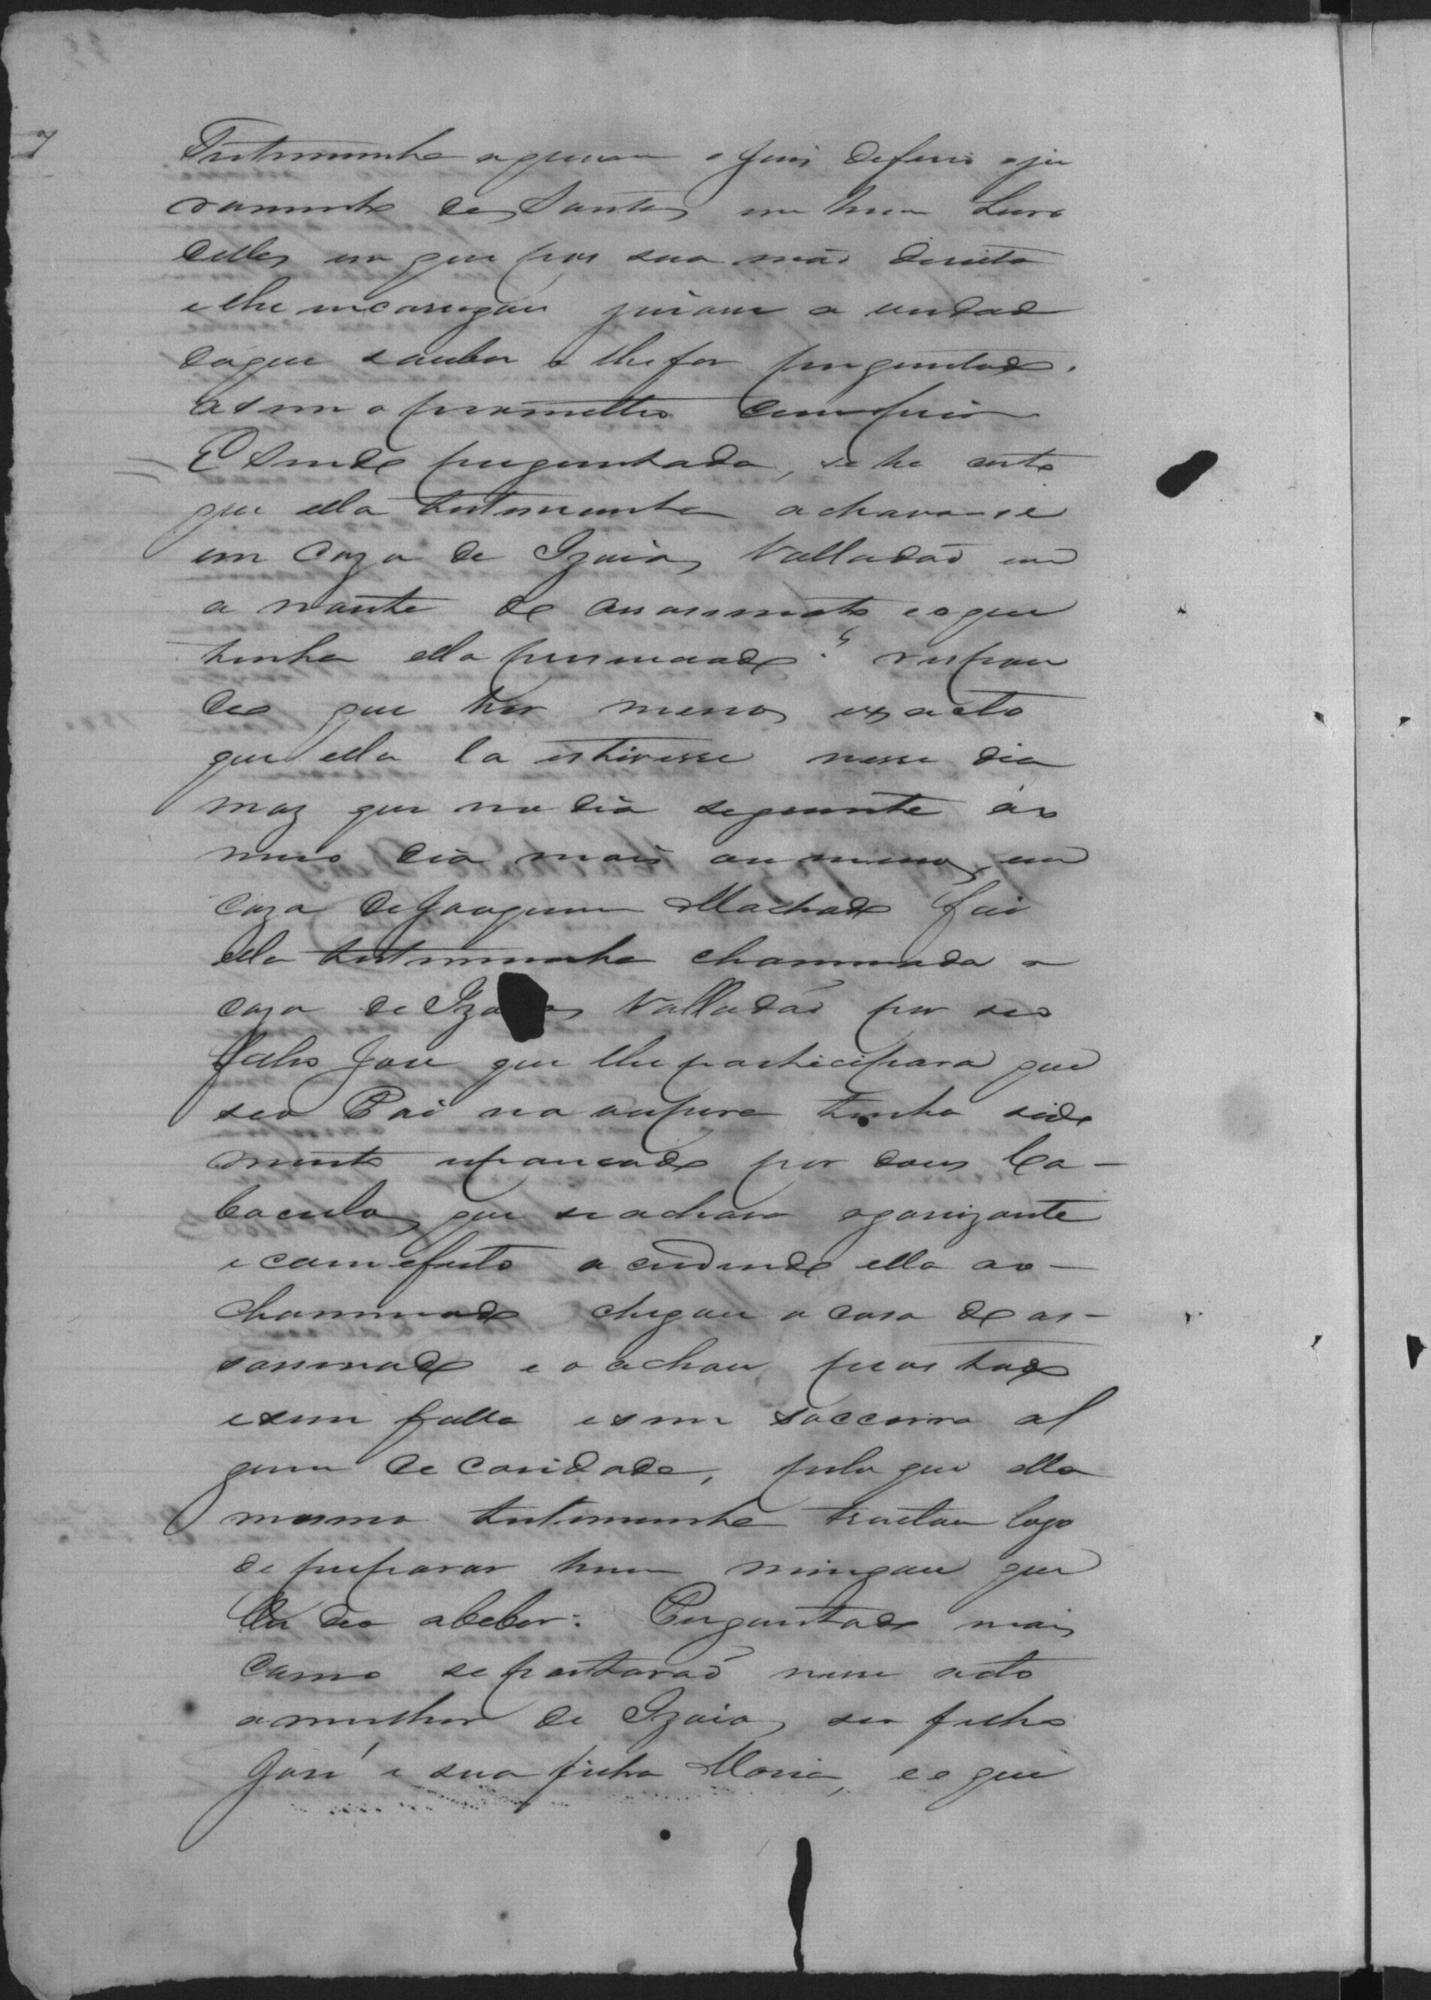 Testemunha aquem o Juis deferio oju
ramento dos Santos em hum Livro
delles em que pos sua mão direita
e lhe encaregou jurase a verdade
doque souber e lhe for perguntado,
asim o prometteo comprir
E Sendo perguntada, se he certo
que ella testemunha achava-se
em Caza de Izaias Valladão em
a noute do acasimento eoque
tinha ella prezenciado? respon
deo que her menos exacto
que ella la estivesse nesse dia
maz que no dia seguinte ao
meio dia mais ou menos, em
caza de Joaquim Machado foi
ella testemunha chammada a
caza de Izaias Valladão por seo
filho José que lhe participara que
seo Pai na vespera tinha sido
muito espancado por dous Ca-
boculos, que se achava agonizante
e com efeito acudindo ella ao
chammado chegou a casa do as-
sasinado e o achou prostado
e sem falla e sem soccorro al
gum de caridade, pelo que ella
mesma testemunha tractou logo
de preparar hum mingau que
lhe deo abeber: Perguntado mais
como se portarão nesse acto
a mulher de Izaias, seo filho
José e sua filha Maria, eo que